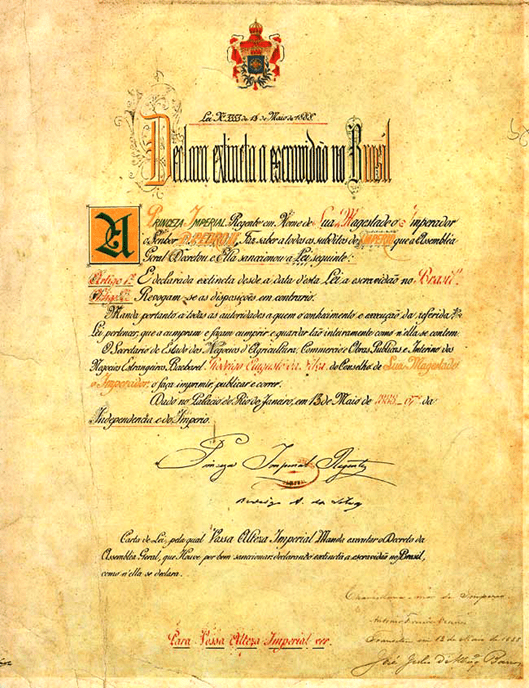 Lei Nº 3353 de 13 de Maio de 1888.
Declara extincta a escravidão no Brasil
A PRINCEZA IMPERIAL, Regente em Nome de Sua Magestade o Imperador
o Senhor D. PEDRO II, Faz saber a todos os subditos do IMPERIO que a Assembléa
Geral Decretou e Ella sanccionou a Lei seguinte:
Artigo 1º É declarada extincta desde a data d'esta Lei a escravidão no Brasil.
Artigo 2º Revogam-se as disposições em contrario.
Manda portanto a todas as autoridades a quem o conhecimento e execução da referida
Lei pertencer, que a cumpram e façam cumprir e guardar tão inteiramente como n'ella se contem.
O Secretario de Estado dos Negocios d'Agricultura, Commercio e Obras Publicas e Interino dos
Negocios Estrangeiros, Bacharel Rodrigo Augusto da Silva, do Conselho de Sua Magestade
o Imperador, o faça imprimir, publicar e correr.
Dado no Palacio do Rio de Janeiro, em 13 de Maio de 1888 - 67º da
Independencia e do Imperio.
Princeza Imperial Regente
Rodrigo A. da Silva
Carta de Lei, pela qual Vossa Alteza Imperial Manda executar o Decreto da
Assembléa Geral, que Houve por bem sanccionar, declarando extincta a escravidão no Brasil,
como n'ella se declara.
Para Vossa Alteza Imperial ver.
Chancellaria-mór do Imperio
Antonio Ferreira Vianna
Transitou em 13 de Maio de 1888
José Julio de